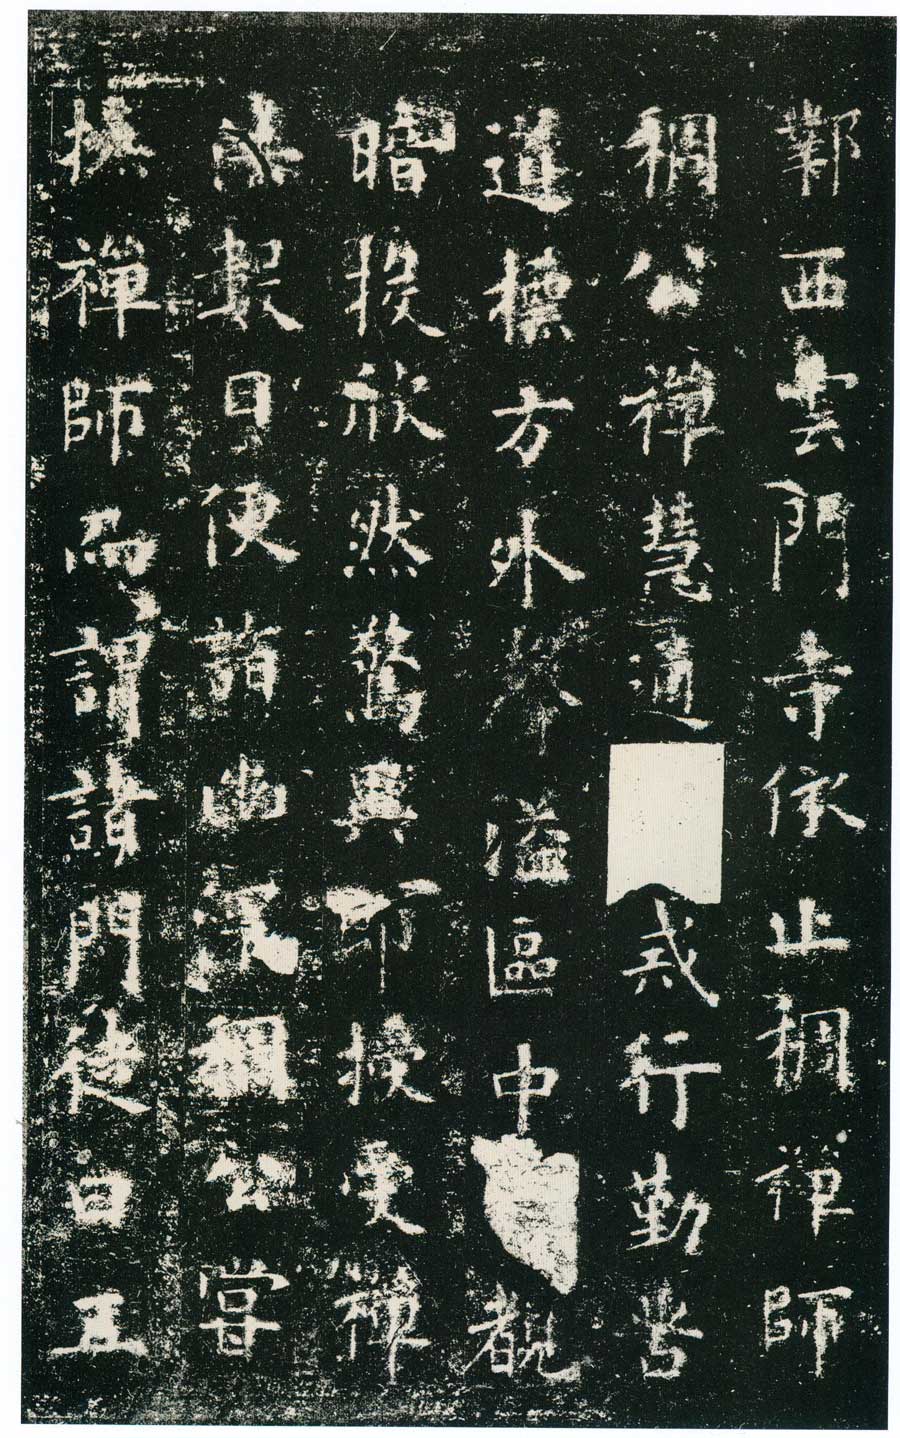 鄴西雲門寺依止稠禪師
稠公禪慧通戒行勤
道標方外溢區中觀
暗投欣然驚異即授受禪
數日便詣幽深稠公嘗
撫禪師而謂諸門徒曰五